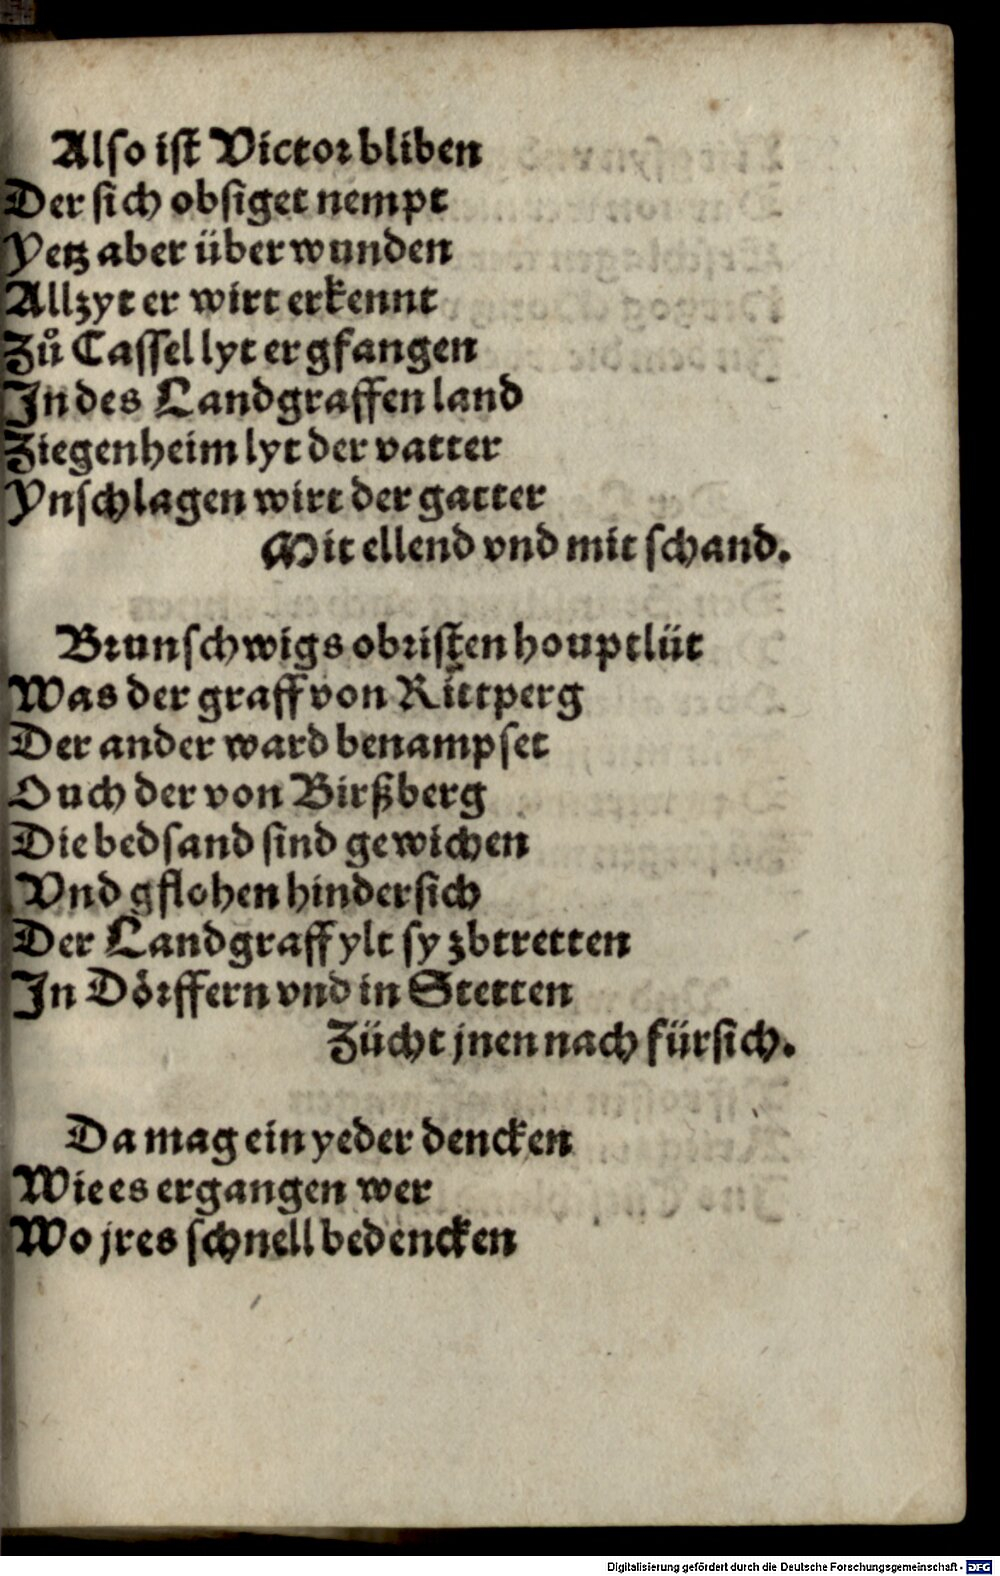 Also ist Victor bliben
Der sich obsiget nempt
Yetz aber überwunden
Allzyt er wirt erkennt
Zů Cassel lyt er gfangen
In des Landgraffen land
Ziegenheim lyt der vatter
Ynschlagen wirt der gatter
Mit ellend vnd mit schand.
Brunschwigs obristen houptlüt
Was der graff von Rittperg
Der ander ward benampset
Ouch der von Birßberg
Die bedsand sind gewichen
Vnd gflohen hindersich
Der Landgraff ylt sy zbtretten
In Dörffern vnd in Stetten
Zücht jnen nach fürsich.
Da mag ein yeder dencken
Wie es ergangen wer
Wo jres schnell bedencken
Digitalisierung gefördert durch die Deutsche Forschungsgemeinschaft - DFG